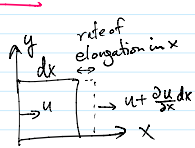 y
rate of
elongation in x
dx
u
u + ∂u/∂x dx
x